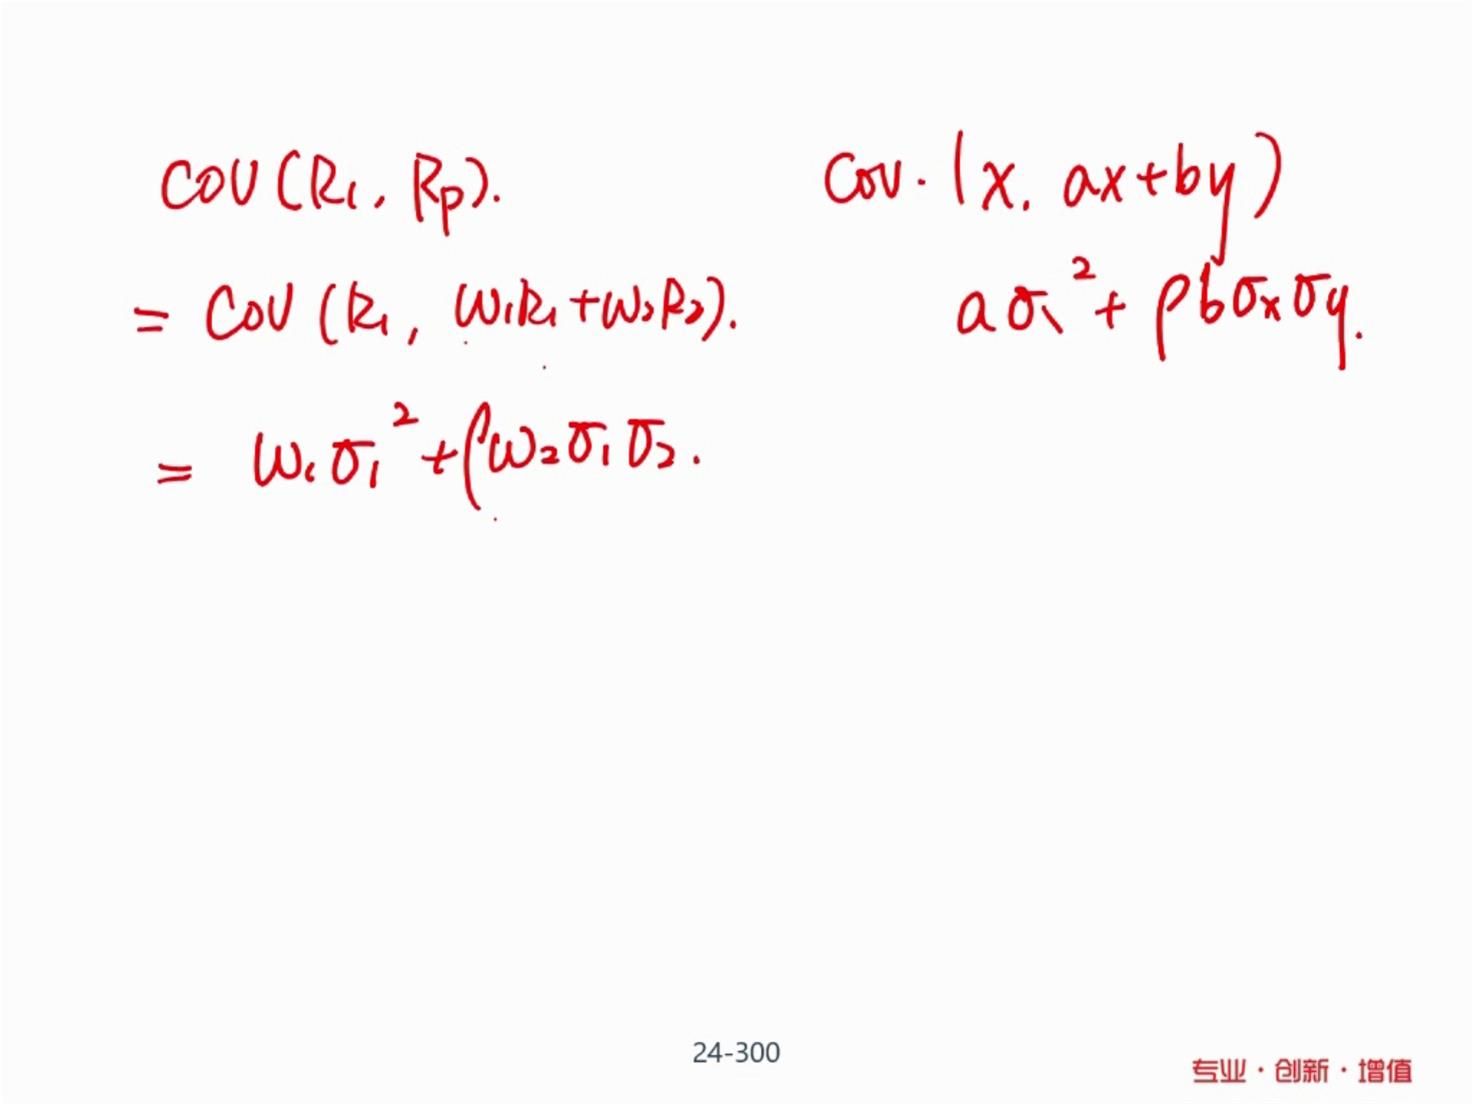 COV(R₁, Rp).
= COV(R₁, W₁R₁+W₂R₂).
= W₁σ₁²+ρW₂σ₁σ₂.
Cov.(x. ax+by)
aσ₁²+ρbσxσy.
24-300
专业·创新·增值